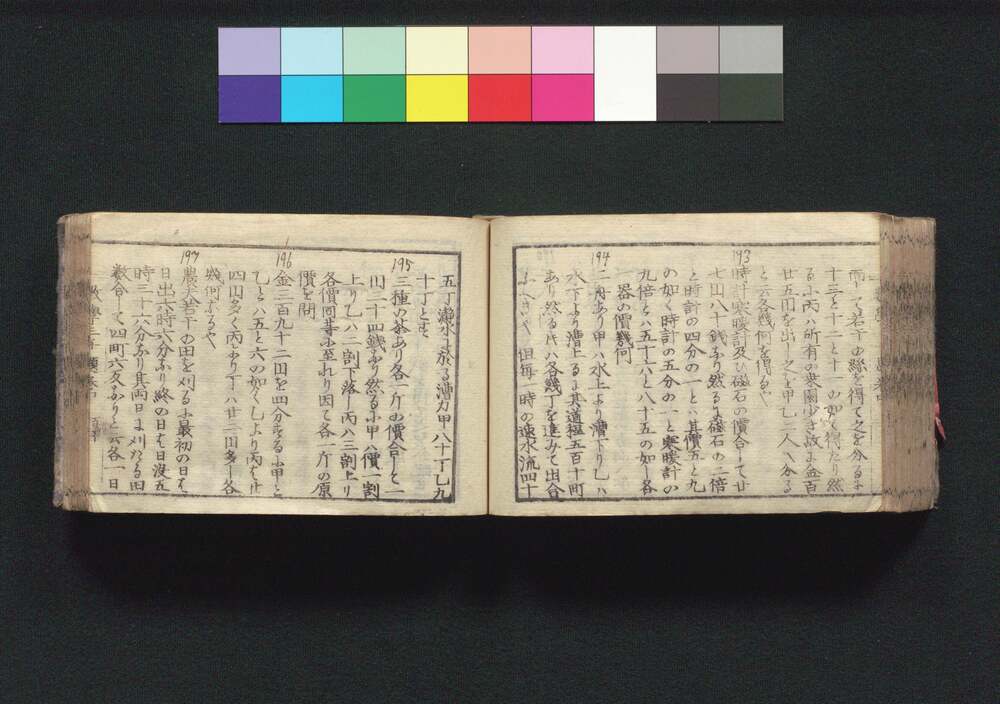 而して若干の繇を得て之を分るに
十三と十一と十一の如く約たり然
るに丙ハ所有の桑園少き故に金百
廿五円を出し之を甲乙二人へ分る
と云各幾何を得るや
193
時計寒暖計及ひ磁石の價合して廿
七円八十銭なり然るに磁石の二倍
と時計の四分の一とハ其價五と九
の如く時計の五分の一と寒暖計の
九倍とハ五十六と八十五の如し各
器の價幾何
194
二舟あり甲ハ水上より漕下り乙ハ
水下より漕上るに其道程五百十町
あり然る片ハ各幾丁を進みて出合
ふへきや但毎一時の速水流四十
五丁静水に於る漕力甲八十丁乙九
十丁とす
195
三種の茶あり各一斤の價合して一
円二十四銭なり然るに甲ハ價一割
上り乙ハ二割下落し丙ハ三割上り
各價同等に至れり因て各一斤の原
價を問
196
金三百九十二円を四分するに甲と
乙とハ五と六の如く乙より丙ハ廿
四円多く丙より丁ハ廿二円多し各
幾何なるや
197
農夫若干の田を刈るに最初の日ハ
日出六時六分なり終の日ハ日没五
時三十六分なり其両日に刈たる田
数合して四町六反なりと云各一日